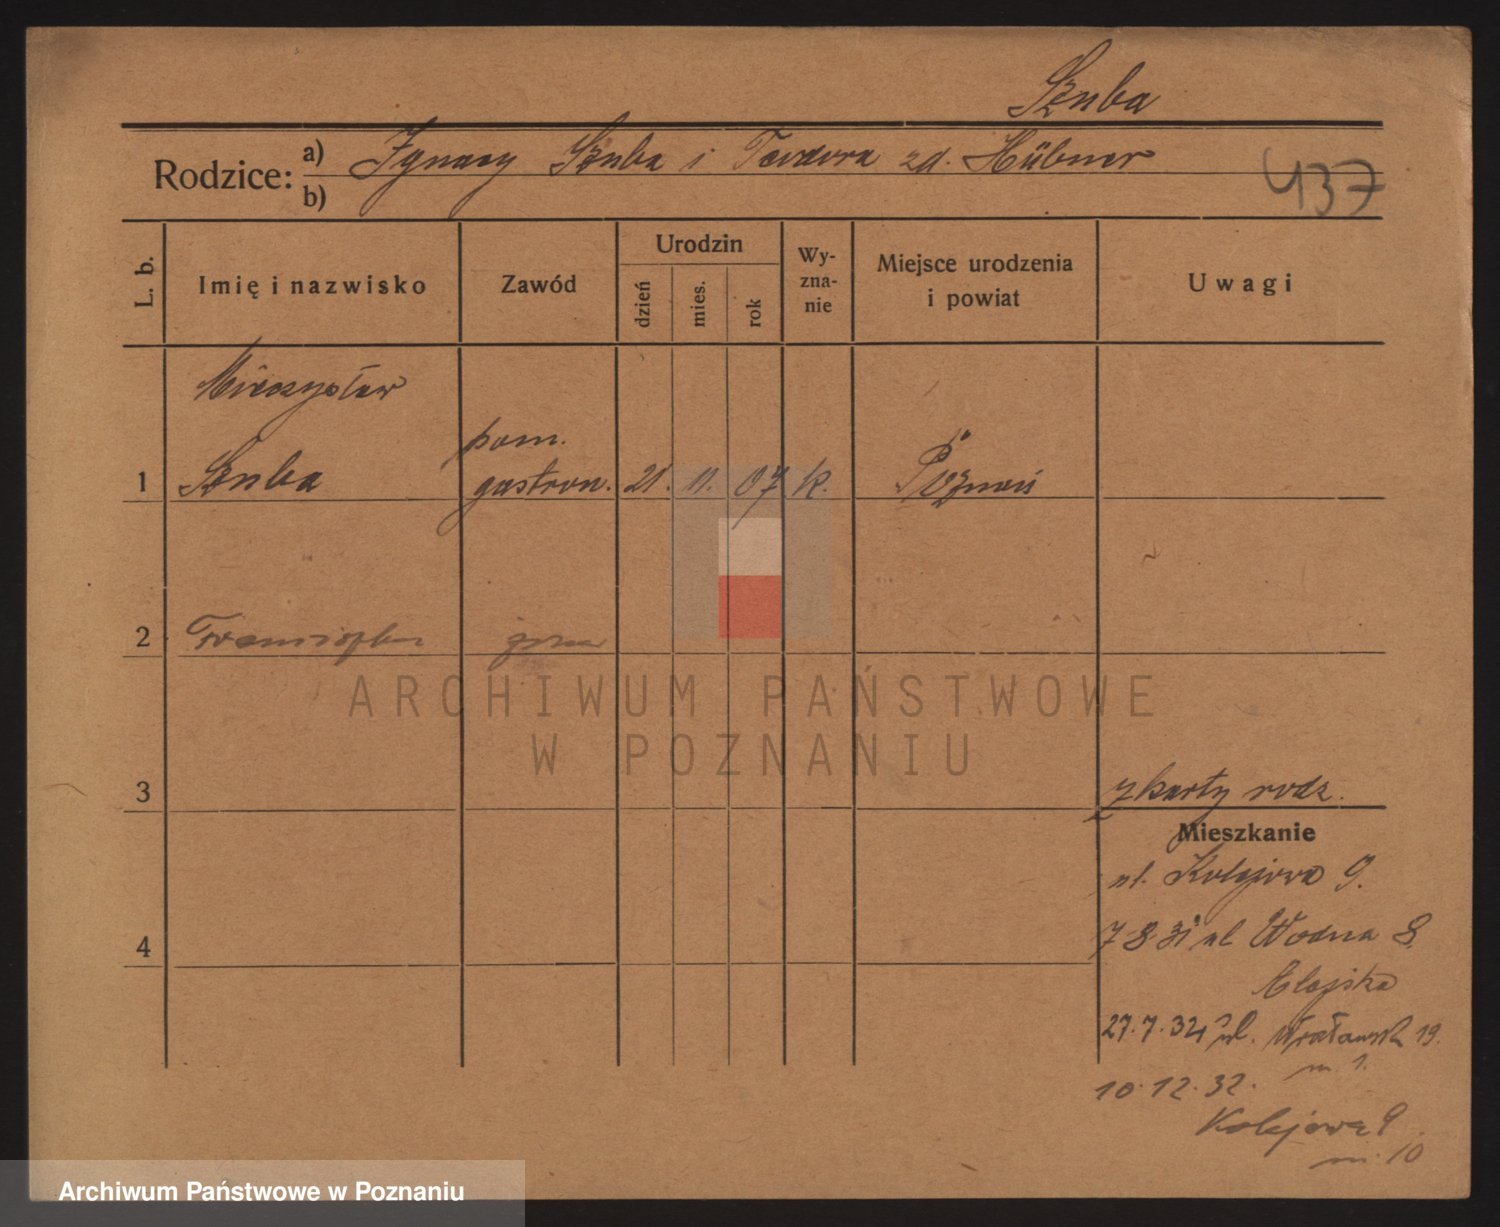 Sznba
Rodzice:
a) Ignacy Sznba i Teodora zd. Hübner
b)
437
L. b.
Imię i nazwisko
Zawód
Urodzin
dzień
mies.
rok
Wy-
zna-
nie
Miejsce urodzenia
i powiat
Uwagi
Mieczysław
1 Sznba
pom.
gastron.
21. 11. 07 k. Poznań
2 Franciszka żona
ARCHIWUM PAŃSTWOWE
W POZNANIU
3
z karty rodz.
Mieszkanie
ul. Kolejowa 9.
7-8-31 ul Wodna 8.
4
27.7.32 ul. Wrocławsk 19.
m 1.
10.12.32.
Kolejowa 9
m. 10
Archiwum Państwowe w Poznaniu